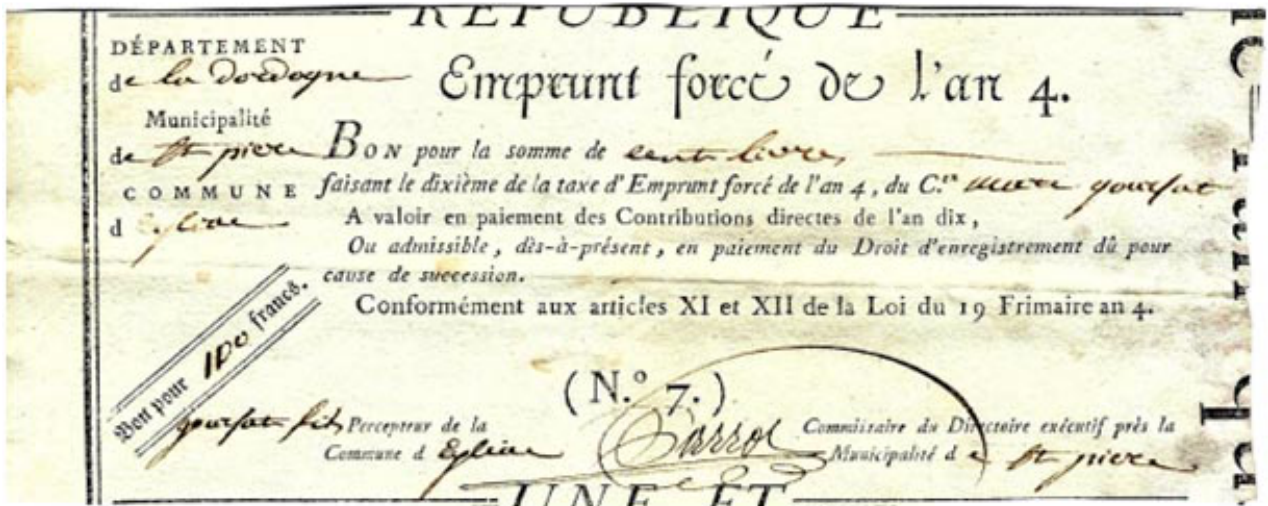 RÉPUBLIQUE
DÉPARTEMENT
de la dordogne
Municipalité
de St pierre
COMMUNE
d'egliac
Emprunt forcé de l'an 4.
BON pour la somme de cent livres
faisant le dixième de la taxe d'Emprunt forcé de l'an 4, du C.en gourfat
A valoir en paiement des Contributions directes de l'an dix,
Ou admissible, dès-à-présent, en paiement du Droit d'enregistrement dû pour
cause de succession.
Conformément aux articles XI et XII de la Loi du 19 Frimaire an 4.
Bon pour 100 francs.
(N.° 7.)
Percepteur de la
Commune d
Commissaire du Directoire exécutif près la
Municipalité de St pierre
UNE ET